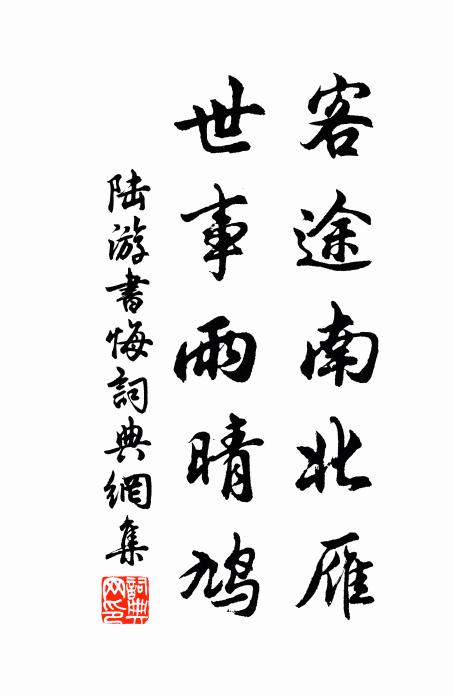 客途南北雁
世事雨晴鸠
陆游書悔詞典網集
詞典
网印